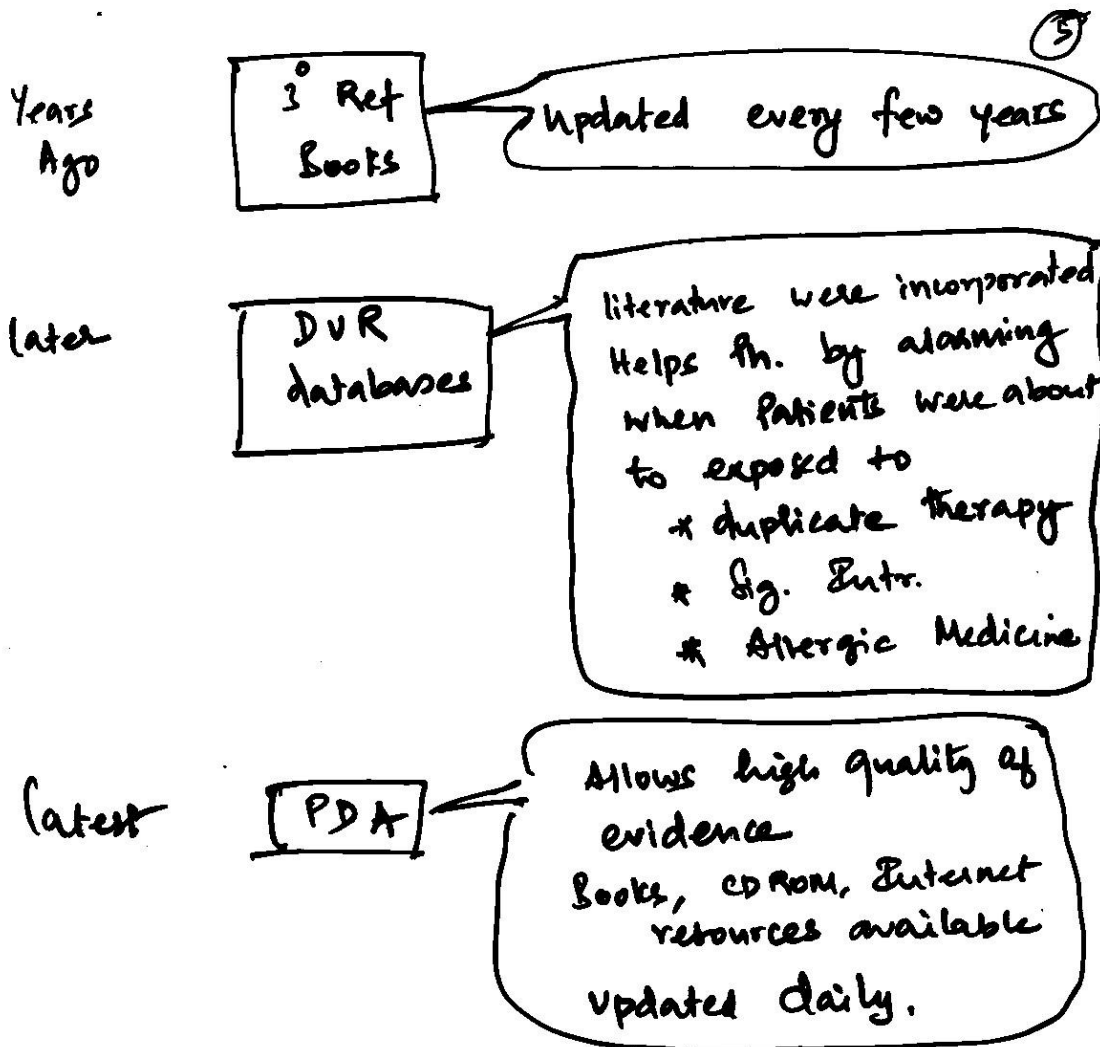 5
Years
Ago
3° Ref
Books
Updated every few years
later
DUR
databases
literature were incorporated
Helps Ph. by alarming
when Patients were about
to exposed to
* duplicate therapy
* Sig. Intr.
* Allergic Medicine
latest
PDA
Allows high quality of
evidence
Books, CD ROM, Internet
resources available
updated daily.